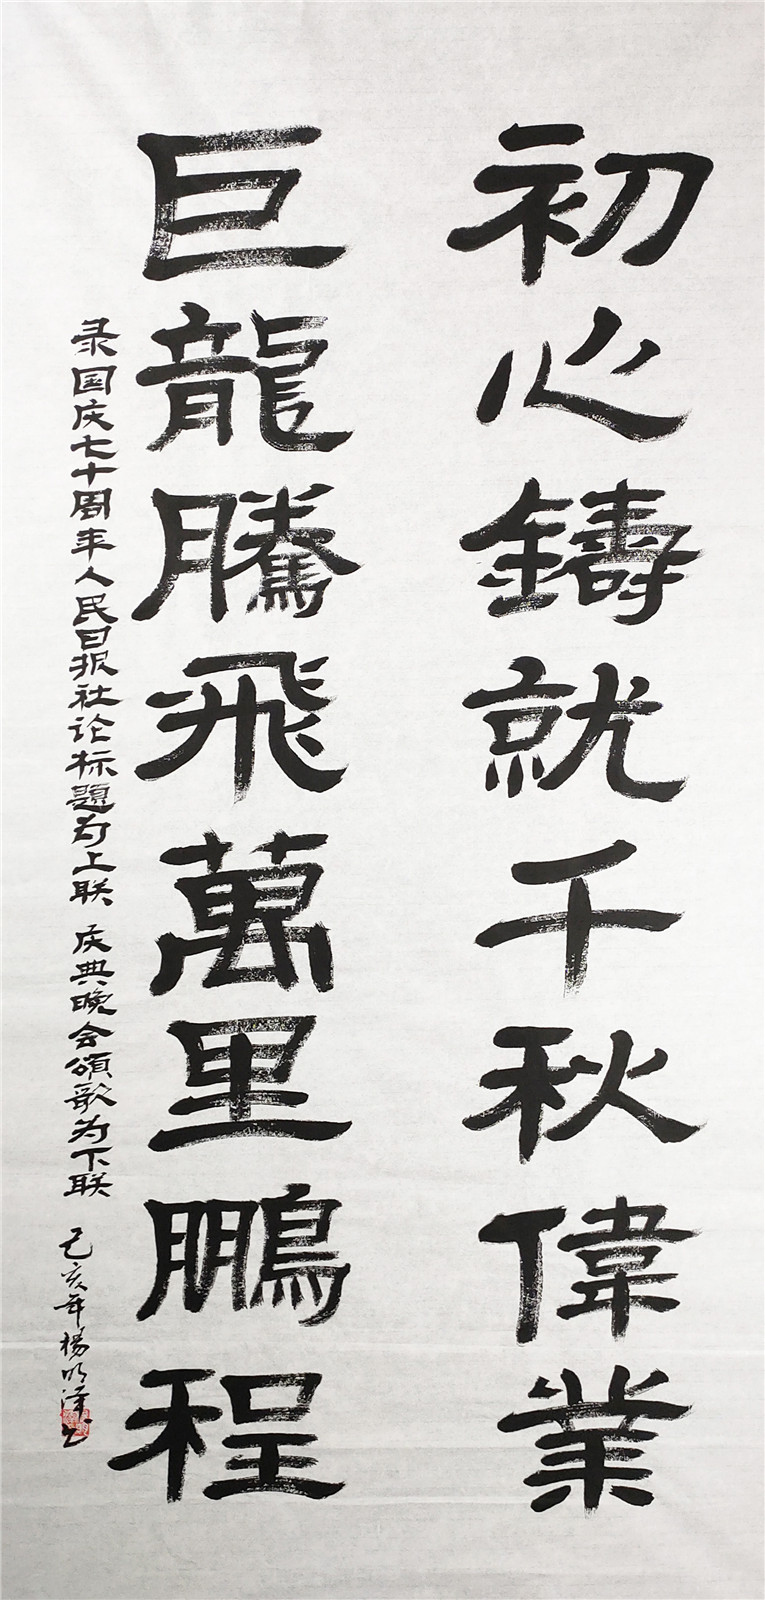 初心鑄就千秋偉業
巨龍騰飛萬里鵬程
录国庆七十周年人民日报社论标题为上联 庆典晚会頌歌为下联 己亥年楊明泽